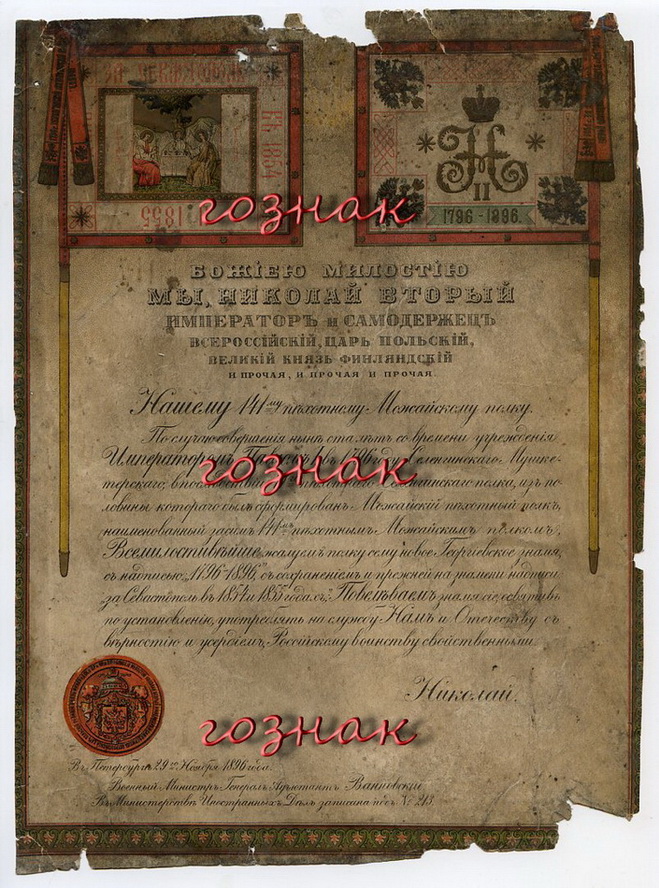 ЗА СЕВАСТОПОЛЬ
ВЪ 1854
1855
Н II
1796-1896.
гознак
БОЖІЕЮ МИЛОСТІЮ
МЫ, НИКОЛАЙ ВТОРЫЙ
ИМПЕРАТОРЪ и САМОДЕРЖЕЦЪ
ВСЕРОССІЙСКІЙ, ЦАРЬ ПОЛЬСКІЙ,
ВЕЛИКІЙ КНЯЗЬ ФИНЛЯНДСКІЙ
И ПРОЧАЯ, И ПРОЧАЯ И ПРОЧАЯ.
Нашему 141му пѣхотному Можайскому полку.
По случаю совершенія нынѣ ста лѣтъ со времени учрежденія
Императоромъ въ 1796 году Мушке-
терскаго, полка, изъ по-
ловины котораго былъ сформированъ Можайскій пѣхотный полкъ,
наименованный затѣмъ 141мъ пѣхотнымъ Можайскимъ полкомъ,
Всемилостивѣйше жалуемъ полку сему новое Георгіевское знамя,
съ надписью: „1796-1896," съ сохраненіемъ и прежней на знамени надписи
„за Севастополь въ 1854 и 1855 годахъ." Повелѣваемъ знамя сіе, освятивъ
по установленію, употреблять на службу Намъ и Отечеству съ
вѣрностію и усердіемъ, Россійскому воинству свойственными.
гознак
Николай.
гознак
Въ Петербургѣ 29го Ноября 1896 года.
Военный Министръ Генералъ Адъютантъ Ванновскій
Въ Министерствѣ Иностранныхъ Дѣлъ записана подъ № 213.